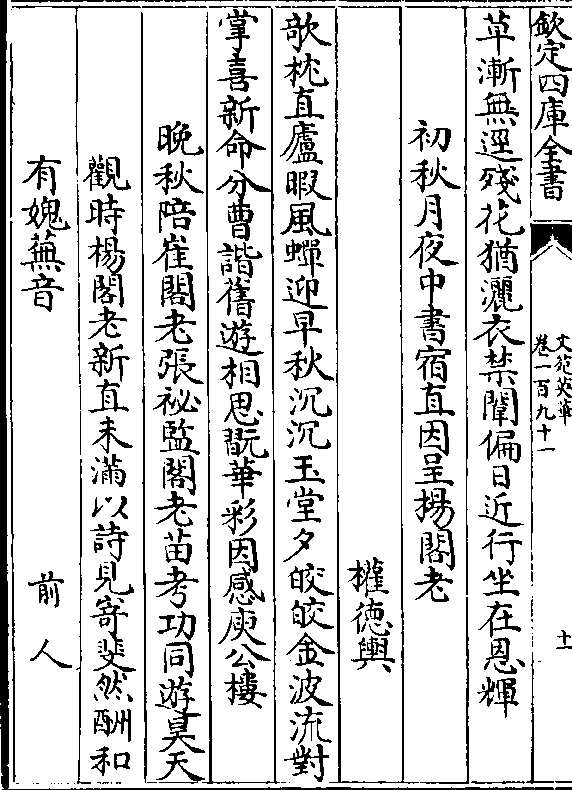 欽定四庫全書
文苑英華
卷一百九十一
十
草漸無逕殘花猶灑衣禁闈偏日近行坐在恩輝
初秋月夜中書宿直因呈揚閣老
權德輿
欹枕直廬暇風蟬迎早秋沉沉玉堂夕皎皎金波流對
掌喜新命分曹諧舊遊相思翫華彩因感庾公樓
晚秋陪崔閣老張祕監閣老苗考功同遊昊天
觀時楊閣老新直未滿以詩見寄斐然酬和
有媿蕪音
前人